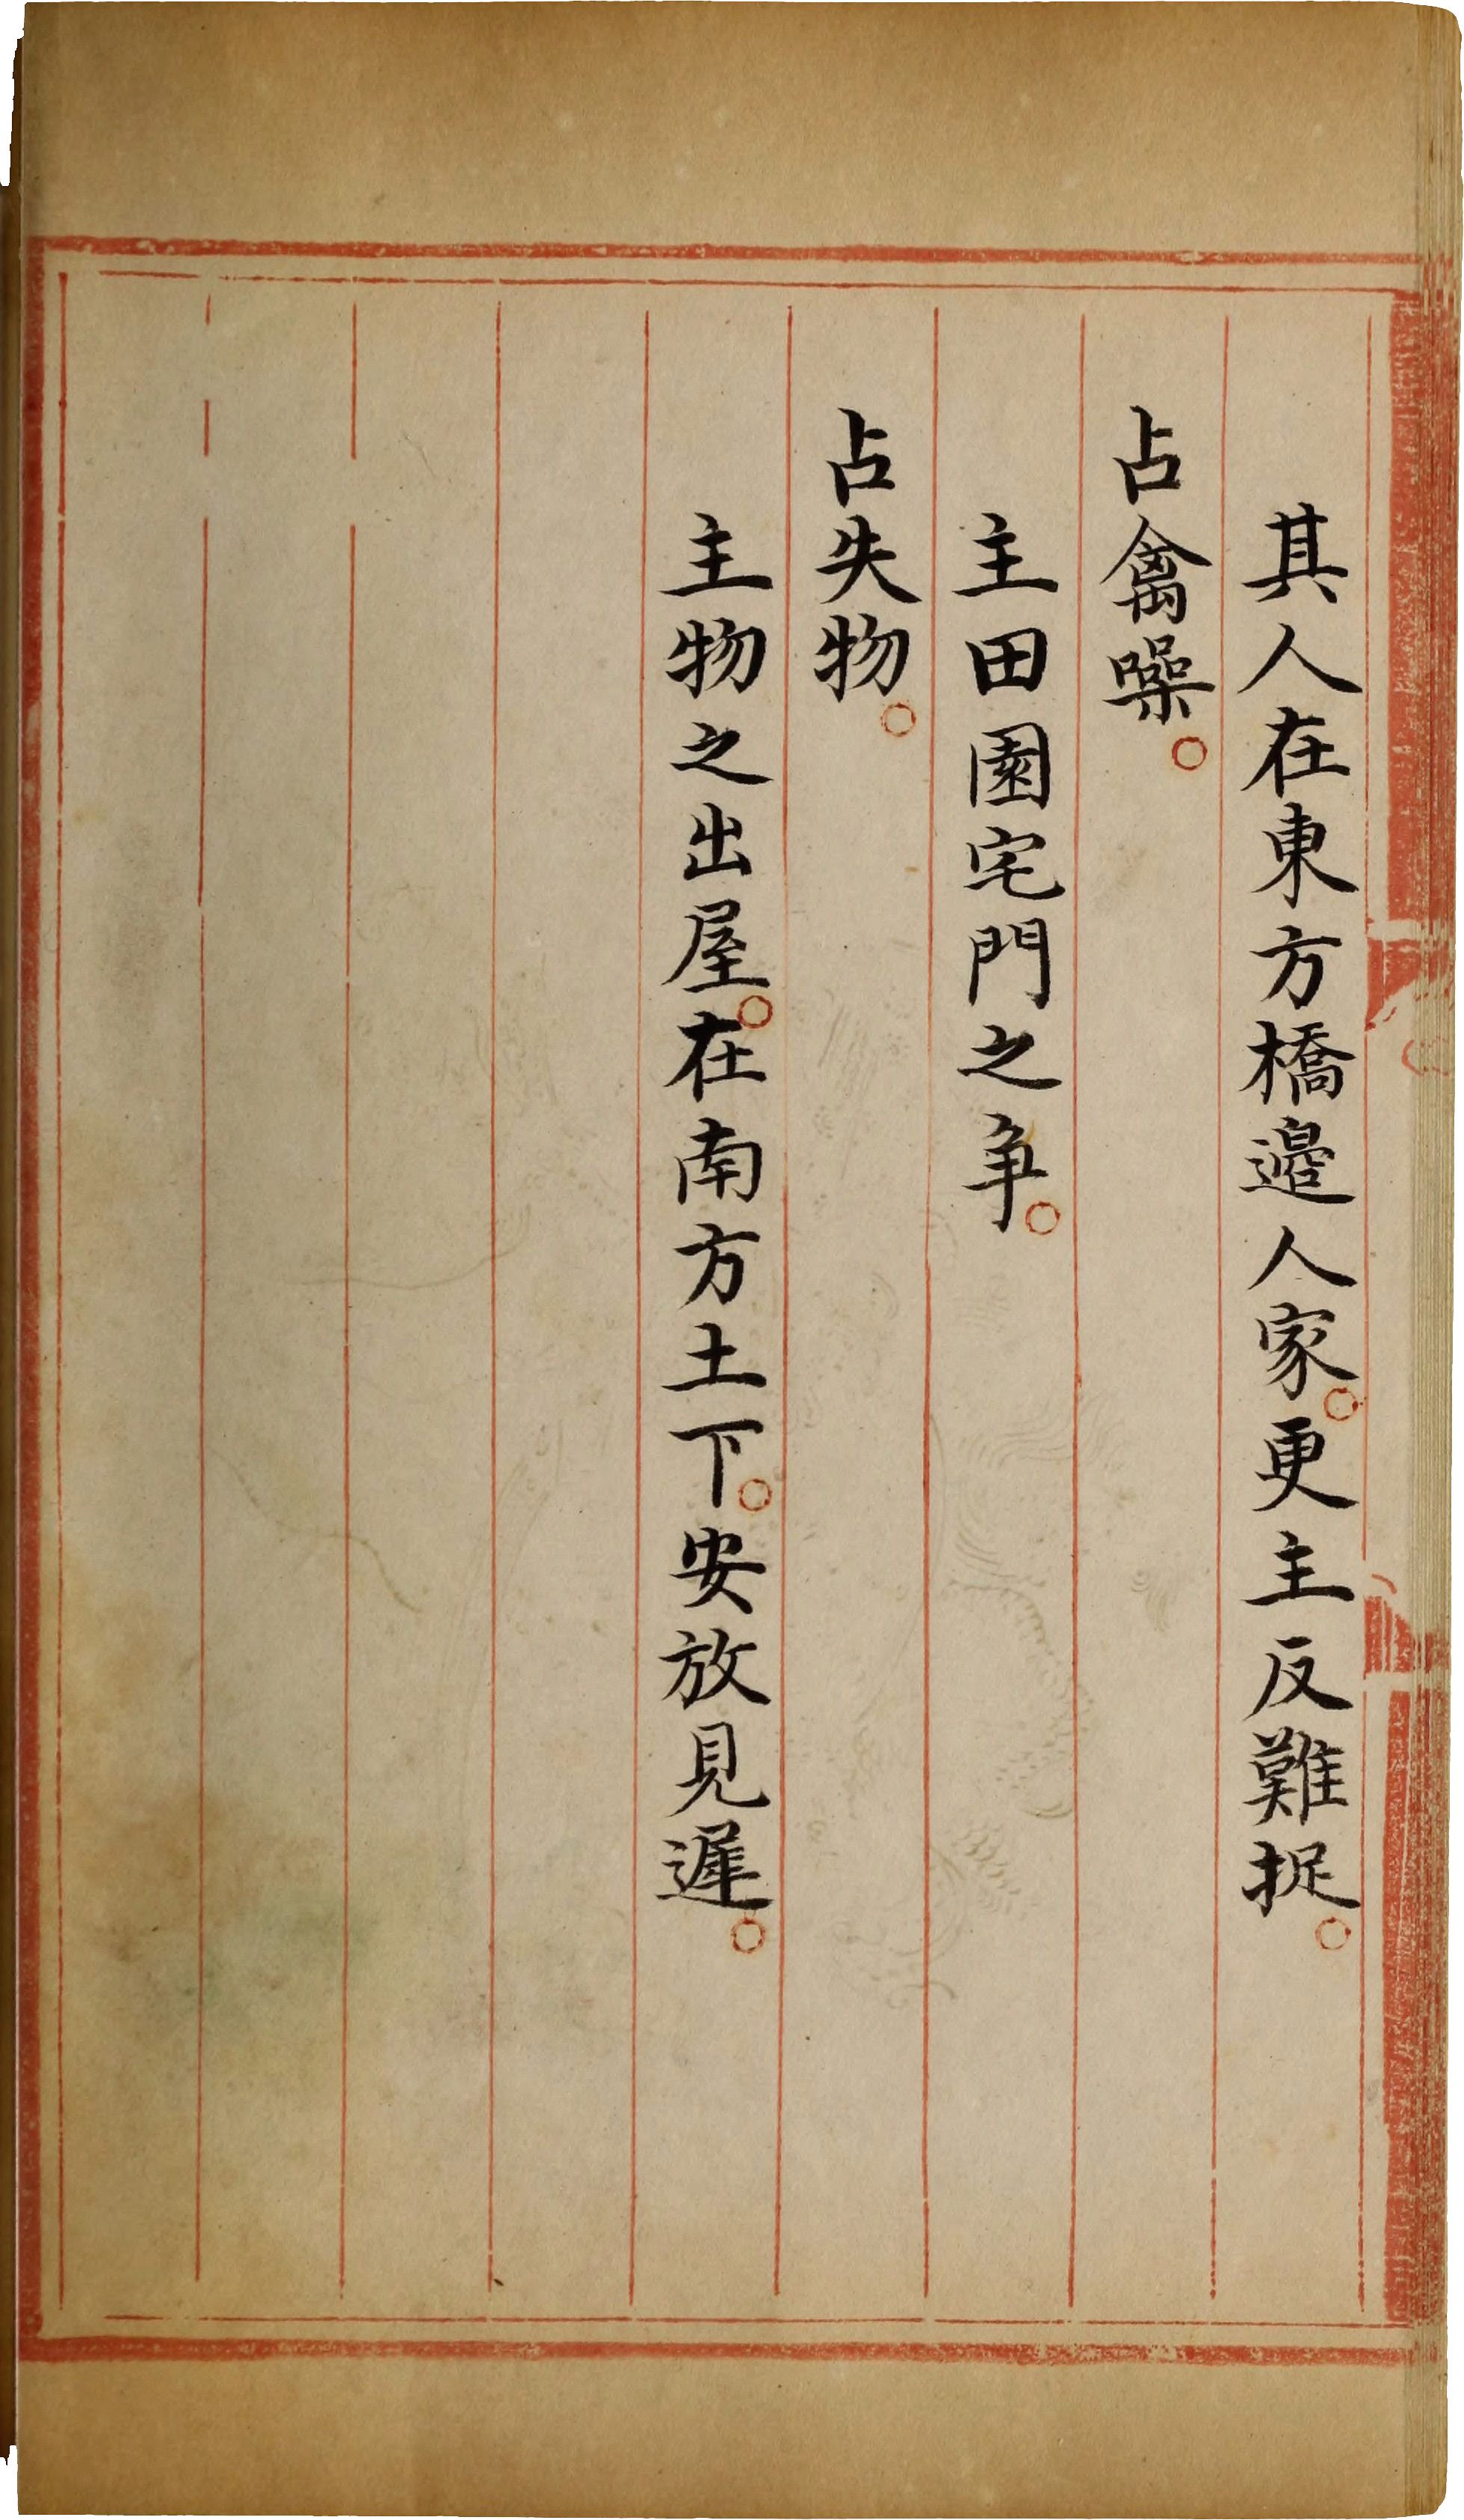 其人在東方橋邉人家。更主反難捉。
占禽噪。
主田園宅門之争。
占失物。
主物之出屋。在南方土下。安放見遲。